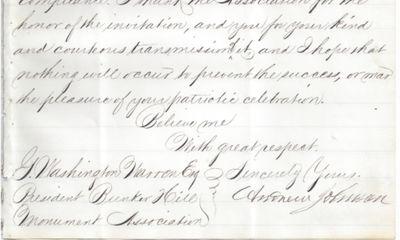 compliance. I thank the Association for the
honor of the invitation, and you for your kind
and courteous transmission of it, and I hope that
nothing will occur to prevent the success, or mar
the pleasure of your patriotic celebration.
Believe me
With great respect.
G. Washington Warren Esq } Sincerely Yours.
President Bunker Hill } Andrew Johnson
Monument Association